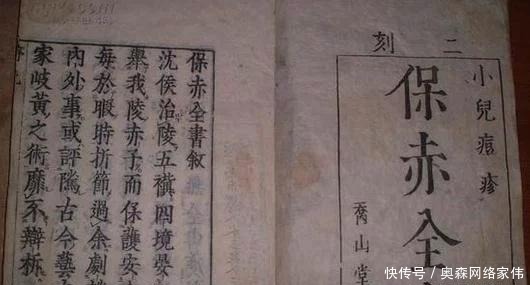 二刻
小兒痘疹
保赤全
喬山堂
保赤全書叙
沈侯治陵五禩四境晏
舉我陵赤子而保護安
每於暇時折節過余劇
內外事或評隲古今藝
家岐黃之術靡不辯析
快传号/奥森网络家伟